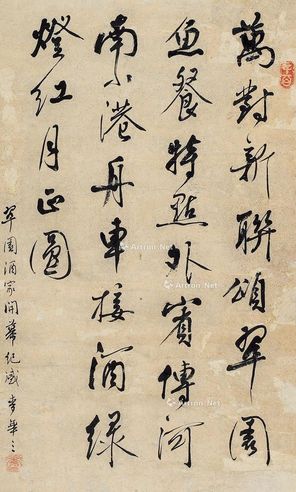 萬對新聯頌翠園
魚餐特點外賓傳河
南小港舟車接酒綠
燈紅月正圓
翠園酒家開幕紀盛 麥華三
Artron.Net